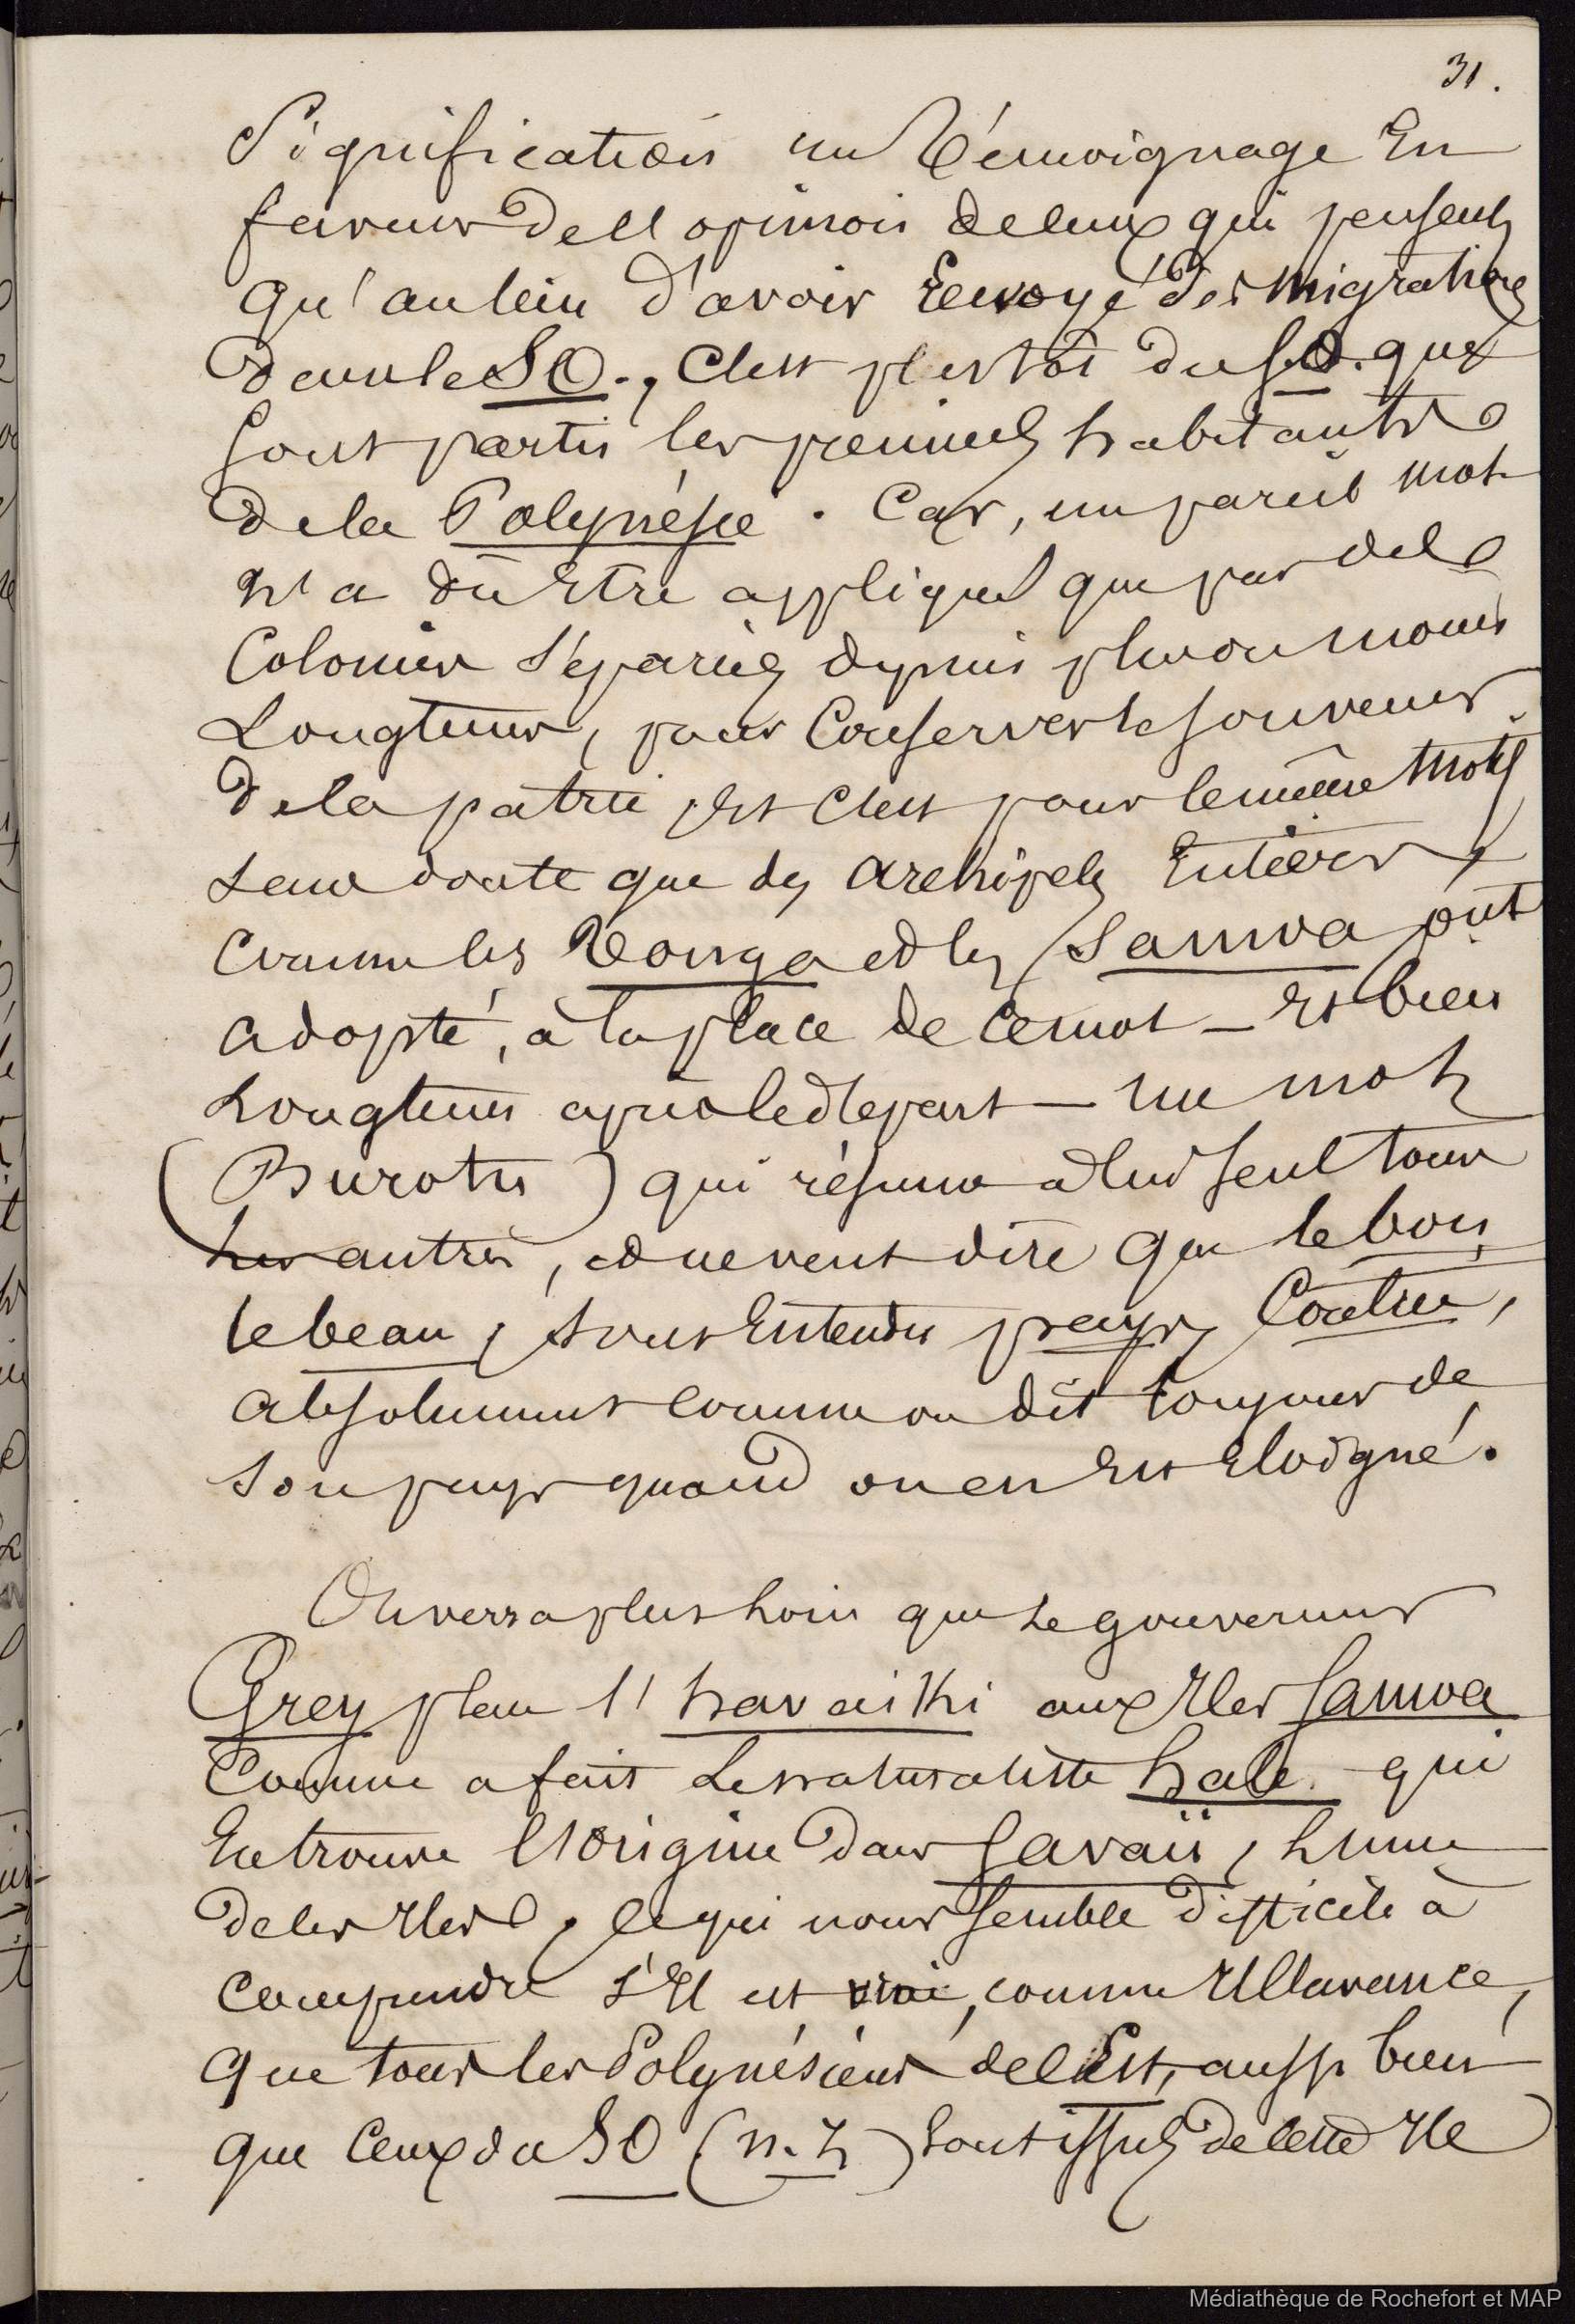 31.
Signification un témoignage en
faveur de l'opinion de ceux qui pensent
qu'au lieu d'avoir envoyé des migrations
dans le SO., c'est plustôt du SO. que
sont partis les premiers habitants
de la Polynésie. Car, un pareil mot
n'a dû être appliqué que par des
Colonies séparées depuis plus ou moins
Longtems, pour conserver le souvenir
de la patrie, et c'est pour le même motif
sans doute que des archipels entiers,
comme les Tonga et les Samoa ont
adopté, à la place de ce mot _ et bien
Longtems après le départ _ un mot
(Burotu) qui résume à lui seul tous
les autres, et ne veut dire que le bon,
le beau, sous entendu pays, contrée,
absolument comme on dit toujours de
son pays quand on en est éloigné.
On verra plus loin que le gouverneur
Grey place l'havaiki aux îles Samoa
Comme a fait le naturaliste hale qui
en trouve l'origine dans Savaii, l'une
de les îles, ce qui nous semble difficile à
comprendre s'il est vrai, comme il l'avance,
que tous les Polynésiens de l'Est, aussi bien
que ceux du SO (n.Z) sont issus de cette île
Médiathèque de Rochefort et MAP